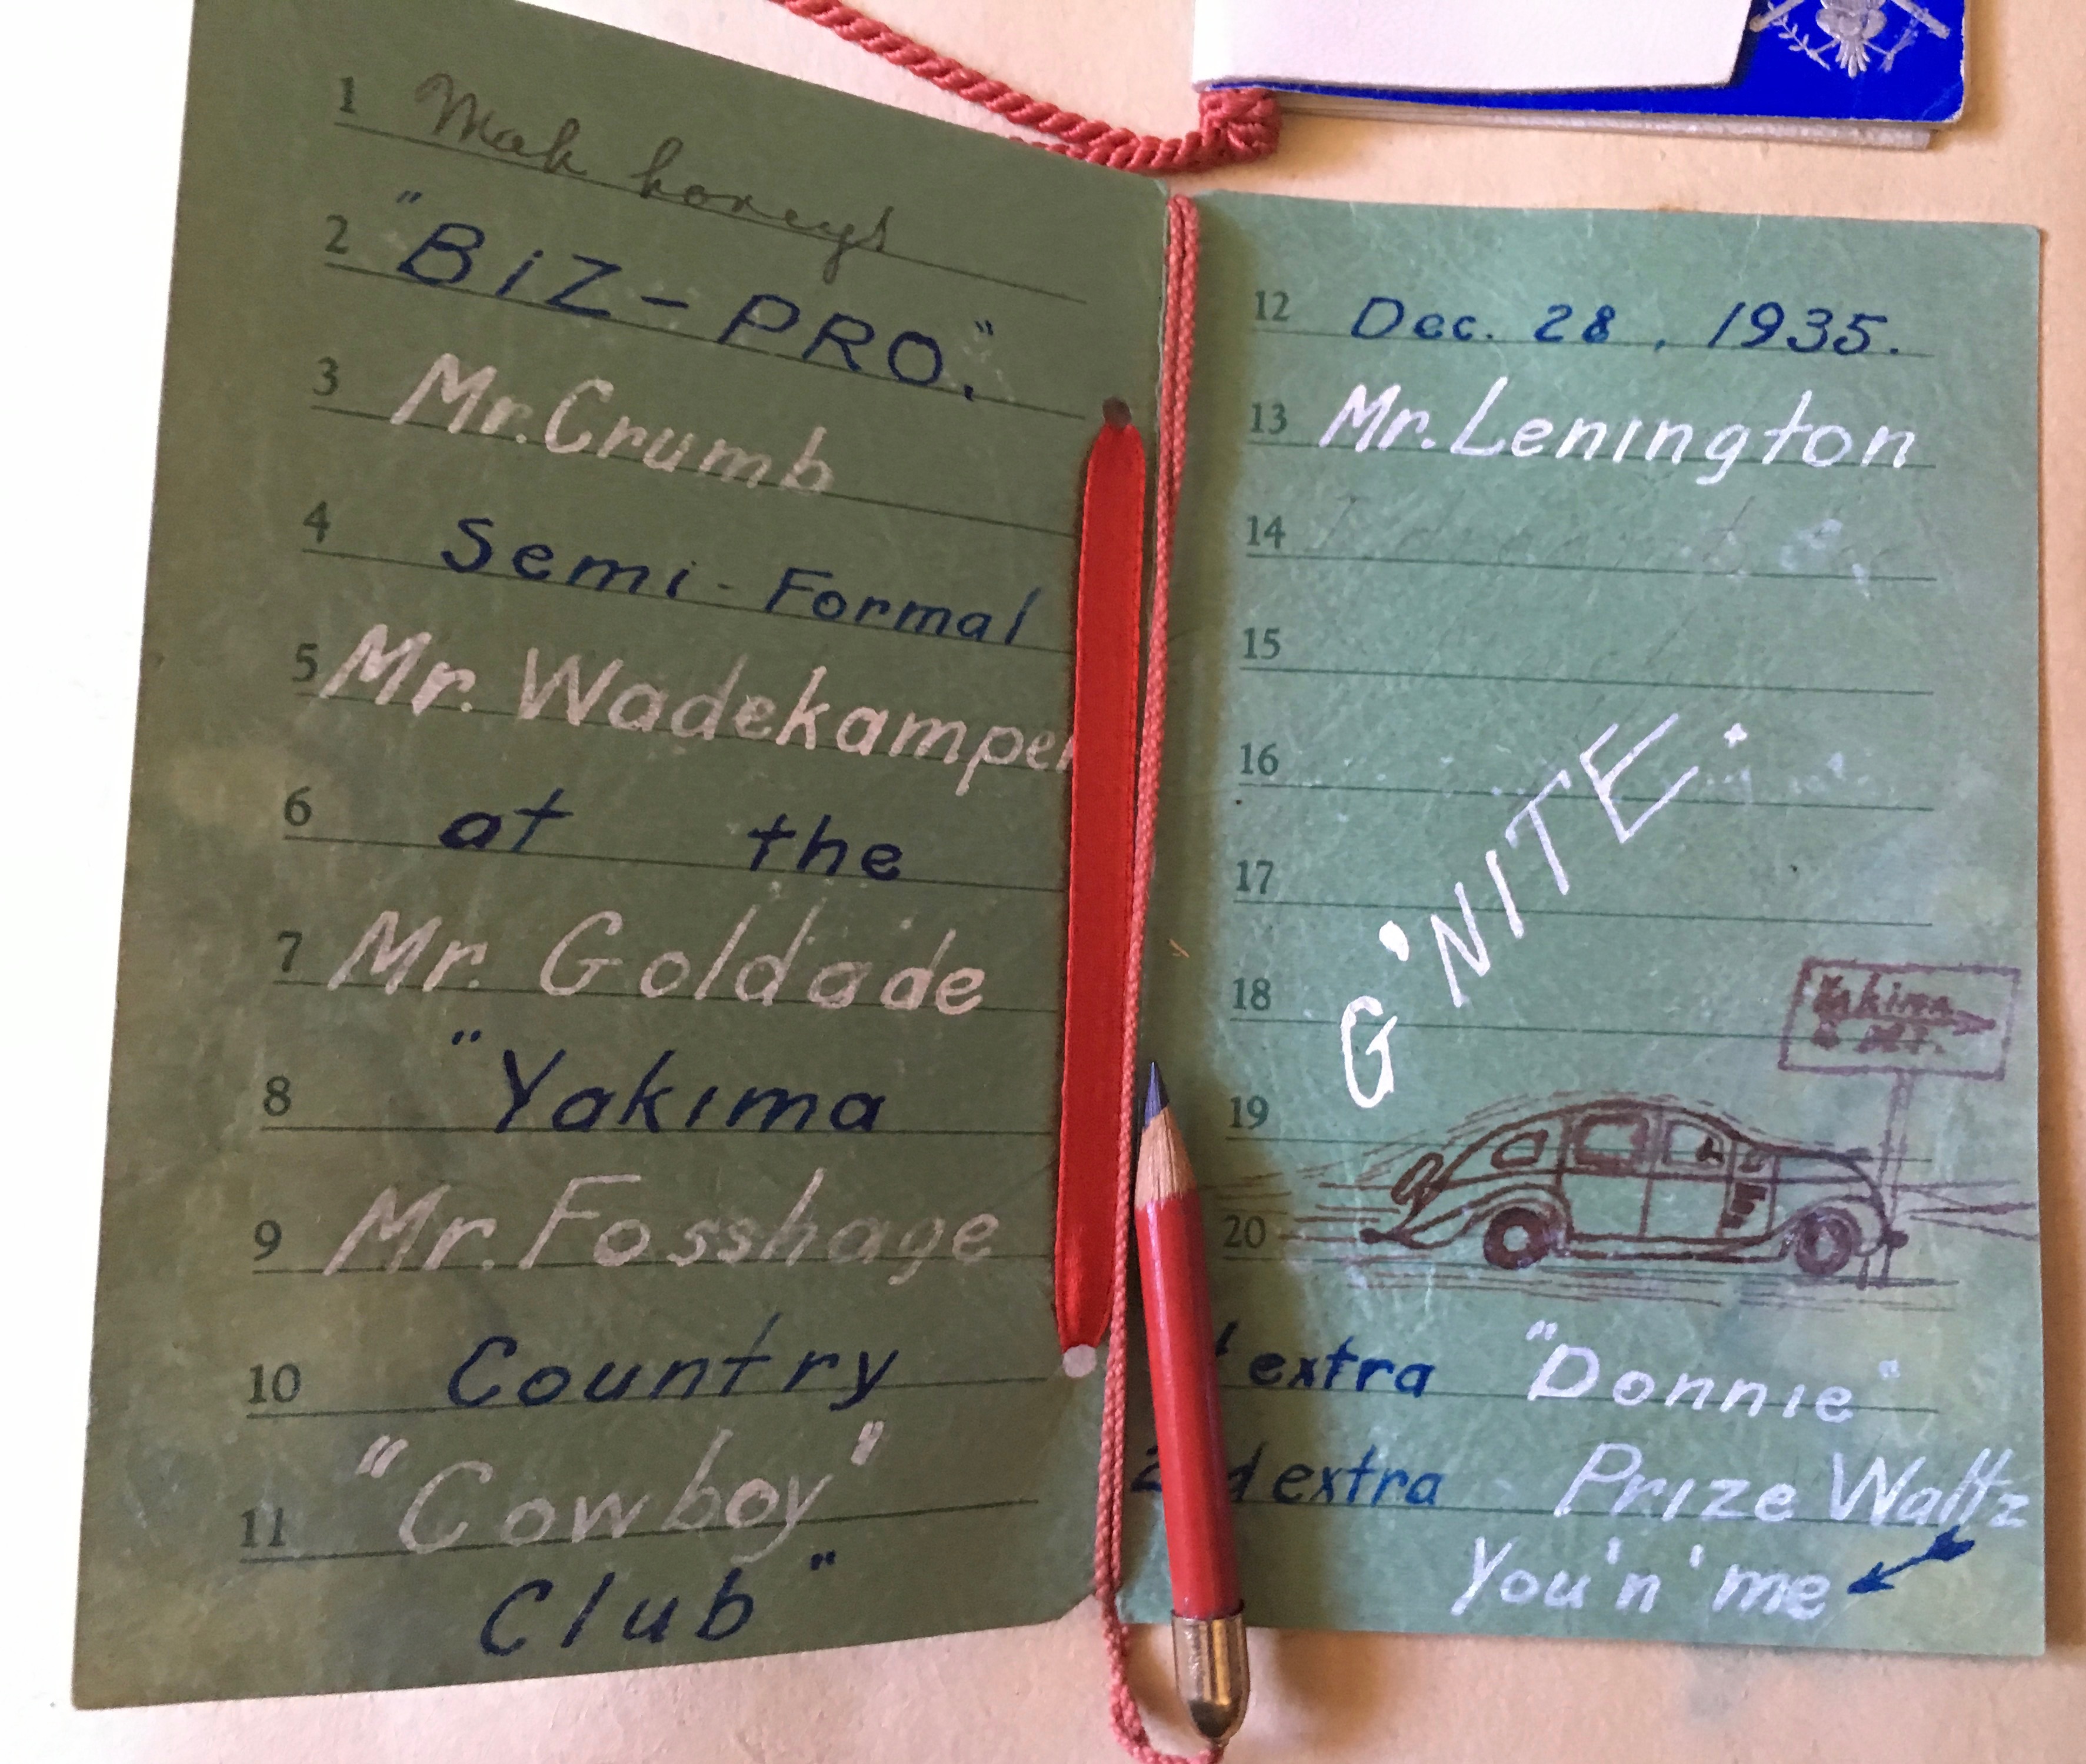 1
2 "BiZ-PRO."
3 Mr. Crumb
4 Semi-Formal
5 Mr. Wadekamper
6 at the
7 Mr. Goldade
8 "Yakima
9 Mr. Fosshage
10 Country
11 "Cowboy"
Club"
12 Dec. 28, 1935.
13 Mr. Lenington
14
15
16
17
G'NITE.
18
Yakima
19
20
extra "Donnie"
2nd extra Prize Waltz
You 'n' me